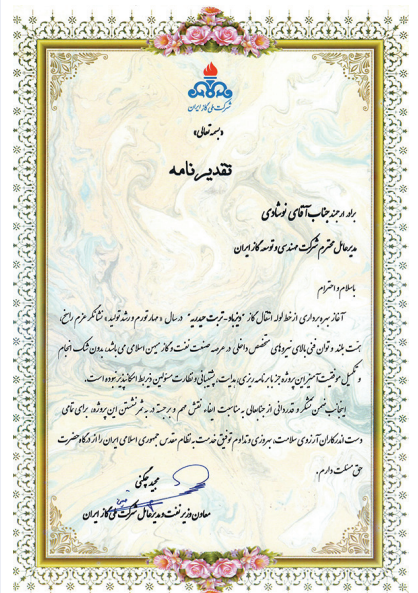 شرکت ملی گاز ایران
«بسمه تعالی»
تقدیرنامه
برادر ارجمند جناب آقای نوشادی
مدیرعامل محترم شرکت مهندسی و توسعه گاز ایران
باسلام و احترام
آغاز بهره برداری از خط لوله انتقال گاز "دیزباد - تربت حیدریه" در سال «مهار تورم و رشد تولید» نشانگر عزم راسخ،
همت بلند و توان فنی بالای نیروهای متخصص داخلی در عرصه صنعت نفت و گاز میهن اسلامی می باشد، بدون شک انجام
و تکمیل موفقیت آمیز این پروژه جز با برنامه ریزی، هدایت، پشتیبانی و نظارت مسئولین ذیربط امکانپذیر نبوده است.
اینجانب ضمن تشکر و قدردانی از جنابعالی به مناسبت ایفاء نقش مهم و برجسته در به ثمر نشستن این پروژه، برای تمامی
دست اندرکاران آرزوی سلامت، بهروزی و تداوم توفیق خدمت به نظام مقدس جمهوری اسلامی ایران را از درگاه حضرت
حق مسئلت دارم.
مجید چگنی
معاون وزیر نفت و مدیرعامل شرکت ملی گاز ایران